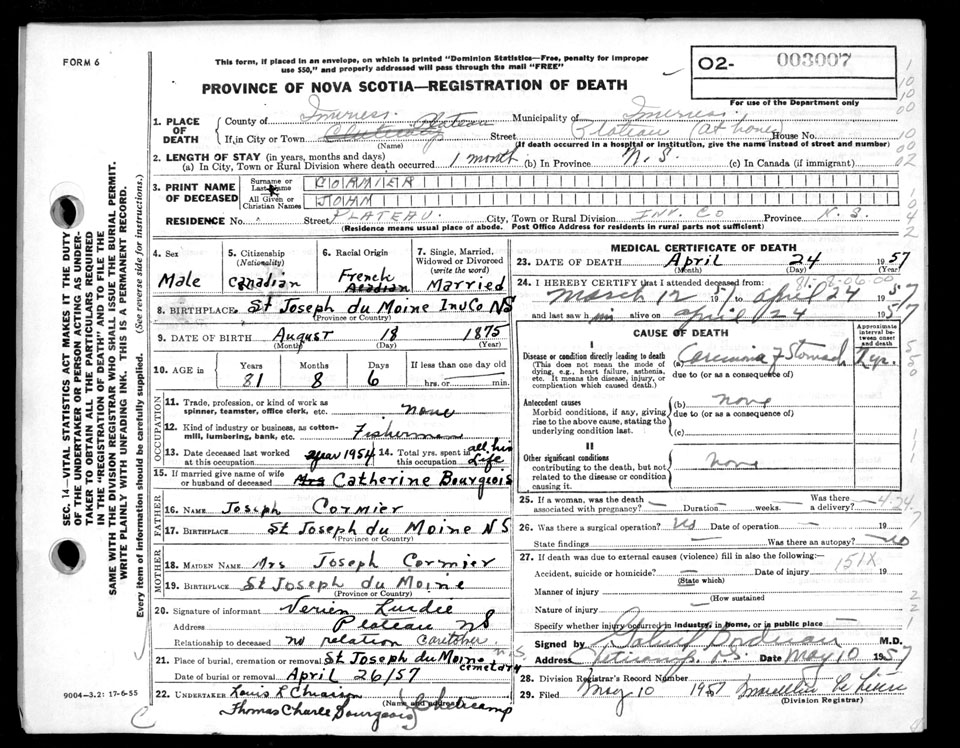 FORM 6
This form, if placed in an envelope, on which is printed "Dominion Statistics—Free, penalty for improper
use $50," and properly addressed will pass through the mail "FREE"
02- 003007
For use of the Department only
PROVINCE OF NOVA SCOTIA—REGISTRATION OF DEATH
1. PLACE OF DEATH
County of Inverness Municipality of Inverness
If in City or Town Plateau Street Plateau (at home) House No.
(Name) (If death occurred in a hospital or institution, give the name instead of street and number)
2. LENGTH OF STAY (in years, months and days)
(a) In City, Town or Rural Division where death occurred 1 month (b) In Province N.S. (c) In Canada (if immigrant)
3. PRINT NAME OF DECEASED
Surname or Last Name CORMIER
All Given or Christian Names JOHN
RESIDENCE No. Street PLATEAU City, Town or Rural Division INV. CO Province N.S.
(Residence means usual place of abode. Post Office Address for residents in rural parts not sufficient)
4. Sex Male
5. Citizenship (Nationality) Canadian
6. Racial Origin French Acadian
7. Single, Married, Widowed or Divorced (write the word) Married
8. BIRTHPLACE St Joseph du Moine Inv Co NS
(Province or Country)
9. DATE OF BIRTH August 18 1875
(Month) (Day) (Year)
10. AGE in Years Months Days If less than one day old
81 8 6 hrs. or min.
OCCUPATION
11. Trade, profession, or kind of work as spinner, teamster, office clerk, etc. none
12. Kind of industry or business, as cotton-mill, lumbering, bank, etc. Fisherman
13. Date deceased last worked at this occupation year 1954 14. Total yrs. spent in this occupation all his Life
15. If married give name of wife or husband of deceased Mrs Catherine Bourgeois
FATHER
16. NAME Joseph Cormier
17. BIRTHPLACE St Joseph du Moine NS
(Province or Country)
MOTHER
18. MAIDEN NAME Mrs Joseph Cormier
19. BIRTHPLACE St Joseph du Moine
(Province or Country)
20. Signature of informant
Address Plateau NS
Relationship to deceased no relation
21. Place of burial, cremation or removal St Joseph du Moine cemetary N.S
Date of burial or removal April 26/57
22. UNDERTAKER Louis L Chiasson
(Name and address)
Thomas Charle Bourgeois Cheticamp
9004—3.2: 17-6-55
SEC. 14—VITAL STATISTICS ACT MAKES IT THE DUTY
OF THE UNDERTAKER OR PERSON ACTING AS UNDER-
TAKER TO OBTAIN ALL THE PARTICULARS REQUIRED
IN THE "REGISTRATION OF DEATH" AND TO FILE THE
SAME WITH THE DIVISION REGISTRAR WHO SHALL ISSUE THE BURIAL PERMIT.
WRITE PLAINLY WITH UNFADING INK. THIS IS A PERMANENT RECORD.
Every item of information should be carefully supplied. (See reverse side for instructions.)
MEDICAL CERTIFICATE OF DEATH
23. DATE OF DEATH April 24 1957
(Month) (Day) (Year)
24. I HEREBY CERTIFY that I attended deceased from:
March 12 1957 to April 24 1957
and last saw him alive on April 24 1957
CAUSE OF DEATH
Approximate interval between onset and death
I
Disease or condition directly leading to death
(This does not mean the mode of dying, e.g., heart failure, asthenia, etc. It means the disease, injury, or complication which caused death.)
(a) Carcinoma of Stomach
due to (or as a consequence of)
Antecedent causes
Morbid conditions, if any, giving rise to the above cause, stating the underlying condition last.
(b) none
due to (or as a consequence of)
(c)
II
Other significant conditions
contributing to the death, but not related to the disease or condition causing it.
none
25. If a woman, was the death associated with pregnancy? — Duration — weeks. Was there a delivery? —
4-24-7
26. Was there a surgical operation? Date of operation — 19
State findings — Was there an autopsy? no
27. If death was due to external causes (violence) fill in also the following:—
Accident, suicide or homicide? — Date of injury 151X 19
(State which)
Manner of injury
(How sustained)
Nature of injury —
Specify whether injury occurred in industry, in home, or in public place
Signed by M.D.
Address Date May 10 1957
28. Division Registrar's Record Number
29. Filed May 10 1957
(Division Registrar)